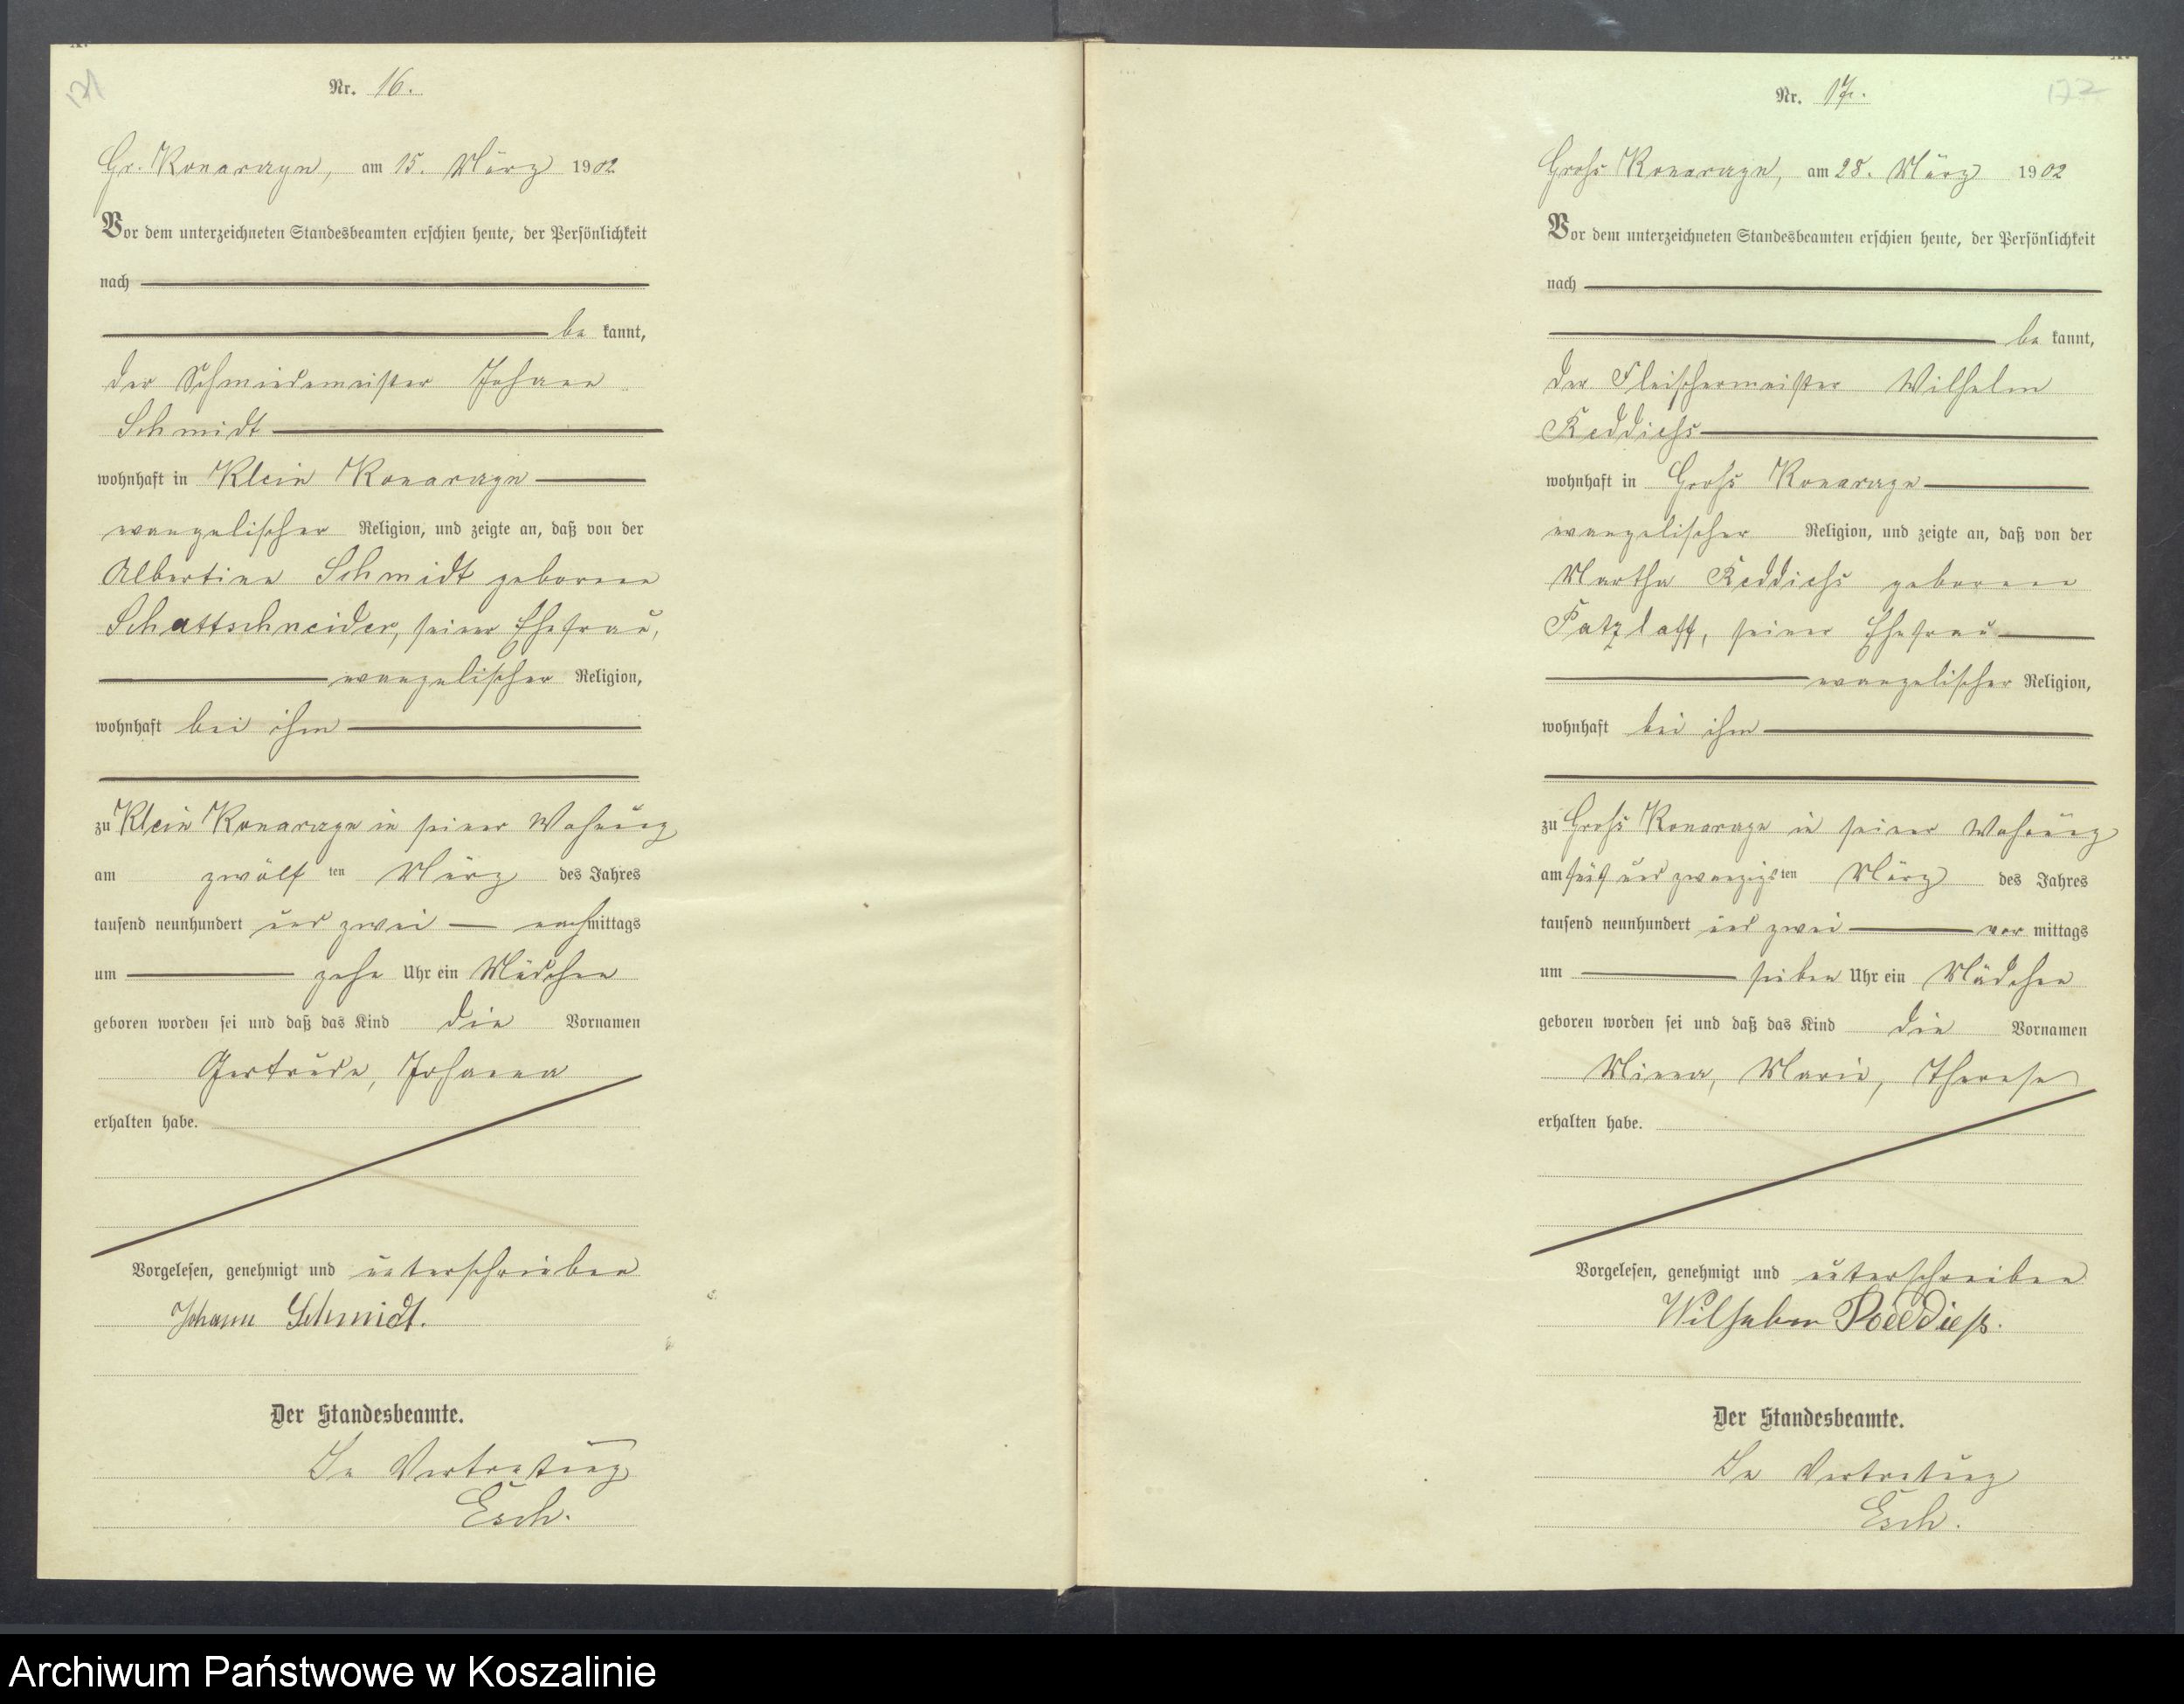 171
Nr. 16.
Gr. Konarzyn, am 15. März 1902
Vor dem unterzeichneten Standesbeamten erschien heute, der Persönlichkeit
nach
be kannt,
der Schmiedemeister Johann
Schmidt
wohnhaft in Klein Konarzyn
evangelischer Religion, und zeigte an, daß von der
Albertine Schmidt geborene
Schattschneider, seiner Ehefrau,
evangelischer Religion,
wohnhaft bei ihm
zu Klein Konarzyn in seiner Wohnung
am zwölf ten März des Jahres
tausend neunhundert und zwei nachmittags
um zehn Uhr ein Mädchen
geboren worden sei und daß das Kind die Vornamen
Gertrude, Johanna
erhalten habe.
Vorgelesen, genehmigt und unterschrieben
Johann Schmidt.
Der Standesbeamte.
In Vertretung
Esch.
172
Nr. 17.
Gross Konarzyn, am 28. März 1902
Vor dem unterzeichneten Standesbeamten erschien heute, der Persönlichkeit
nach
be kannt,
der Fleischermeister Wilhelm
Reddiess
wohnhaft in Gross Konarzyn
evangelischer Religion, und zeigte an, daß von der
Martha Reddiess geborene
Patzlaff, seiner Ehefrau
evangelischer Religion,
wohnhaft bei ihm
zu Gross Konarzyn in seiner Wohnung
am fünf und zwanzigsten März des Jahres
tausend neunhundert und zwei vor mittags
um sieben Uhr ein Mädchen
geboren worden sei und daß das Kind die Vornamen
Minna, Marie, Therese
erhalten habe.
Vorgelesen, genehmigt und unterschrieben
Wilhelm
Der Standesbeamte.
In Vertretung
Esch.
Archiwum Państwowe w Koszalinie